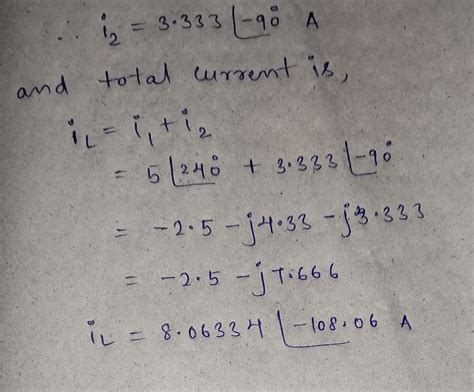 ∴ i₂ = 3.333 ∠-90° A
and total current is,
i_L = i₁ + i₂
= 5 ∠240° + 3.333 ∠-90°
= -2.5 - j4.33 - j3.333
= -2.5 - j7.666
i_L = 8.06334 ∠-108.06 A